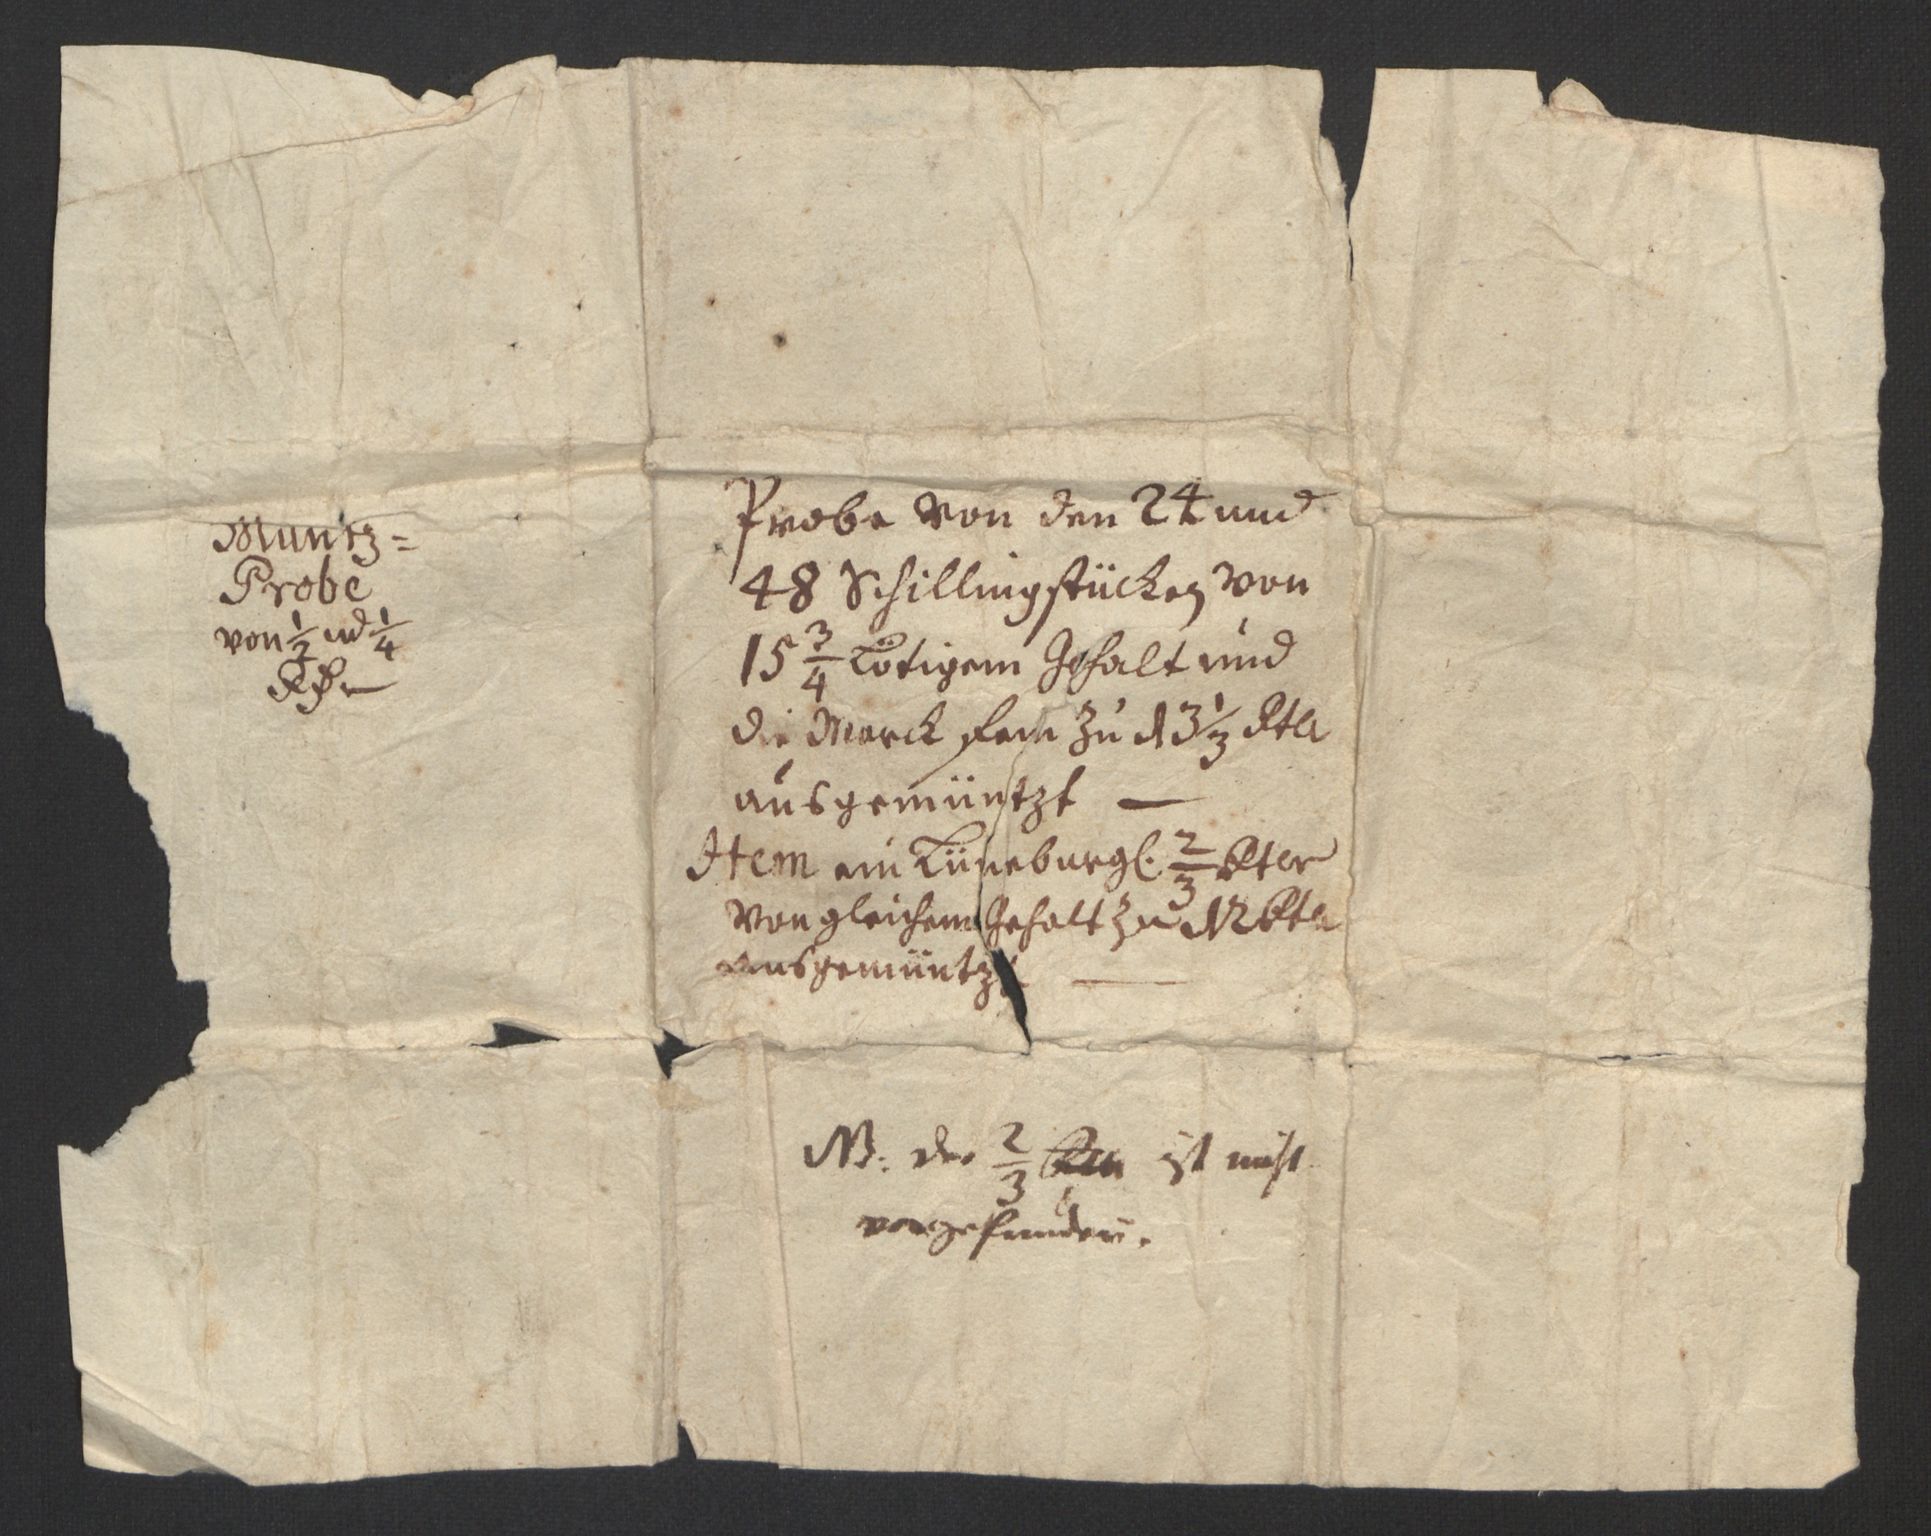 Muntz=
Probe
von 1/2 und 1/4
Probe von den 24 und
48 Schillingstücken von
15 3/4 Lötigem Gehalt und
die Marck fein zu 13 1/3 Rtlr
ausgemüntzt —
Item ein Lüneburgl. 2/3 Rtlr
von gleichem Gehalt zu 12 Rtlr
ausgemüntzt —
NB. der 2/3 ist nicht
vorgefunden.